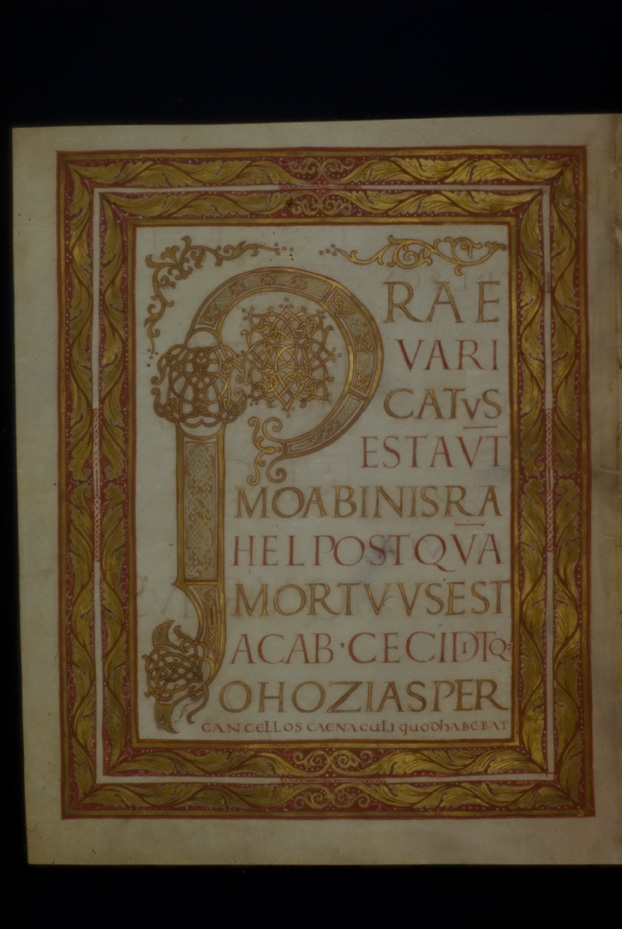 P RAE
VARI
CATVS
EST AVT
MOAB IN ISRA
HEL POSTQVA
MORTVVS EST
ACAB · CECIDITQ:
OHOZIAS PER
CANCELLOS CAENACULI QUOD HABEBAT